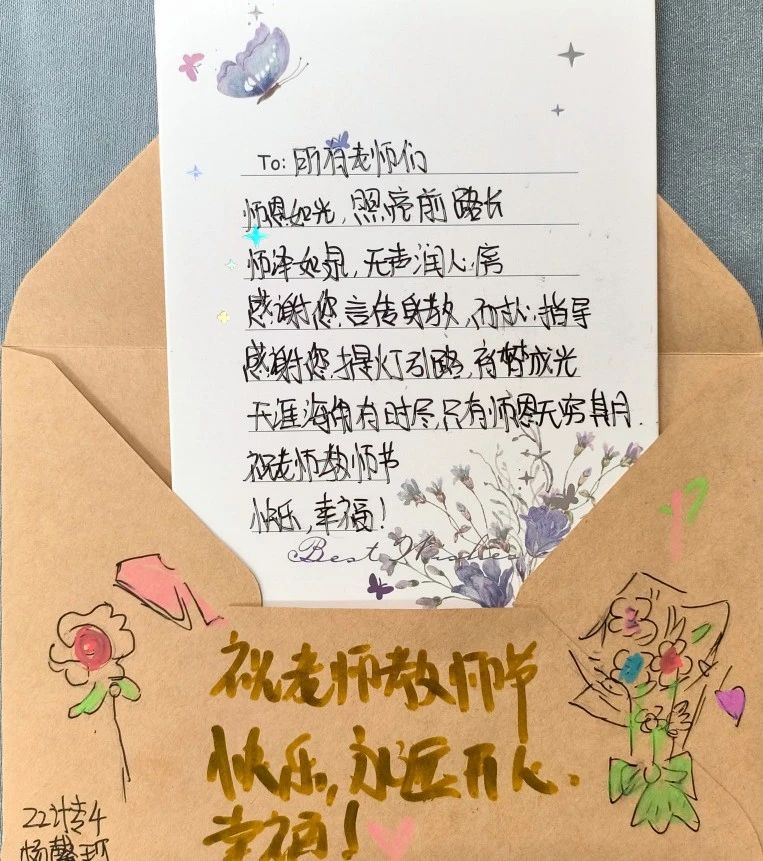 To: 所有老师们
师恩如光，照亮前路长
师泽如泉，无声润心房
感谢您言传身教，耐心指导
感谢您提灯引路，育梦成光
天涯海角有时尽，只有师恩无穷期。
祝老师教师节
快乐，幸福！
Best Wishes
祝老师教师节
快乐，永远开心．
幸福！
22计专4
杨馨